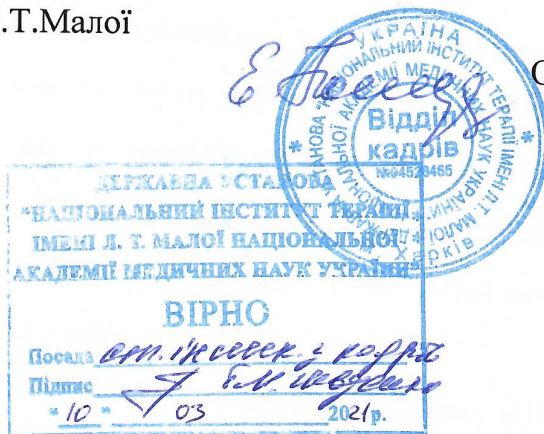 .Т.Малої
О
УКРАЇНА
"НАЦІОНАЛЬНИЙ ІНСТИТУТ ТЕРАПІЇ ІМЕНІ Л.Т. МАЛОЇ
НАЦІОНАЛЬНОЇ АКАДЕМІЇ МЕДИЧНИХ НАУК УКРАЇНИ"
Відділ
кадрів
Харків
ДЕРЖАВНА УСТАНОВА
"НАЦІОНАЛЬНИЙ ІНСТИТУТ ТЕРАПІЇ
ІМЕНІ Л. Т. МАЛОЇ НАЦІОНАЛЬНОЇ
АКАДЕМІЇ МЕДИЧНИХ НАУК УКРАЇНИ"
ВІРНО
Посада ст. інспек. з кадрів
Підпис
"10" 03 2021р.